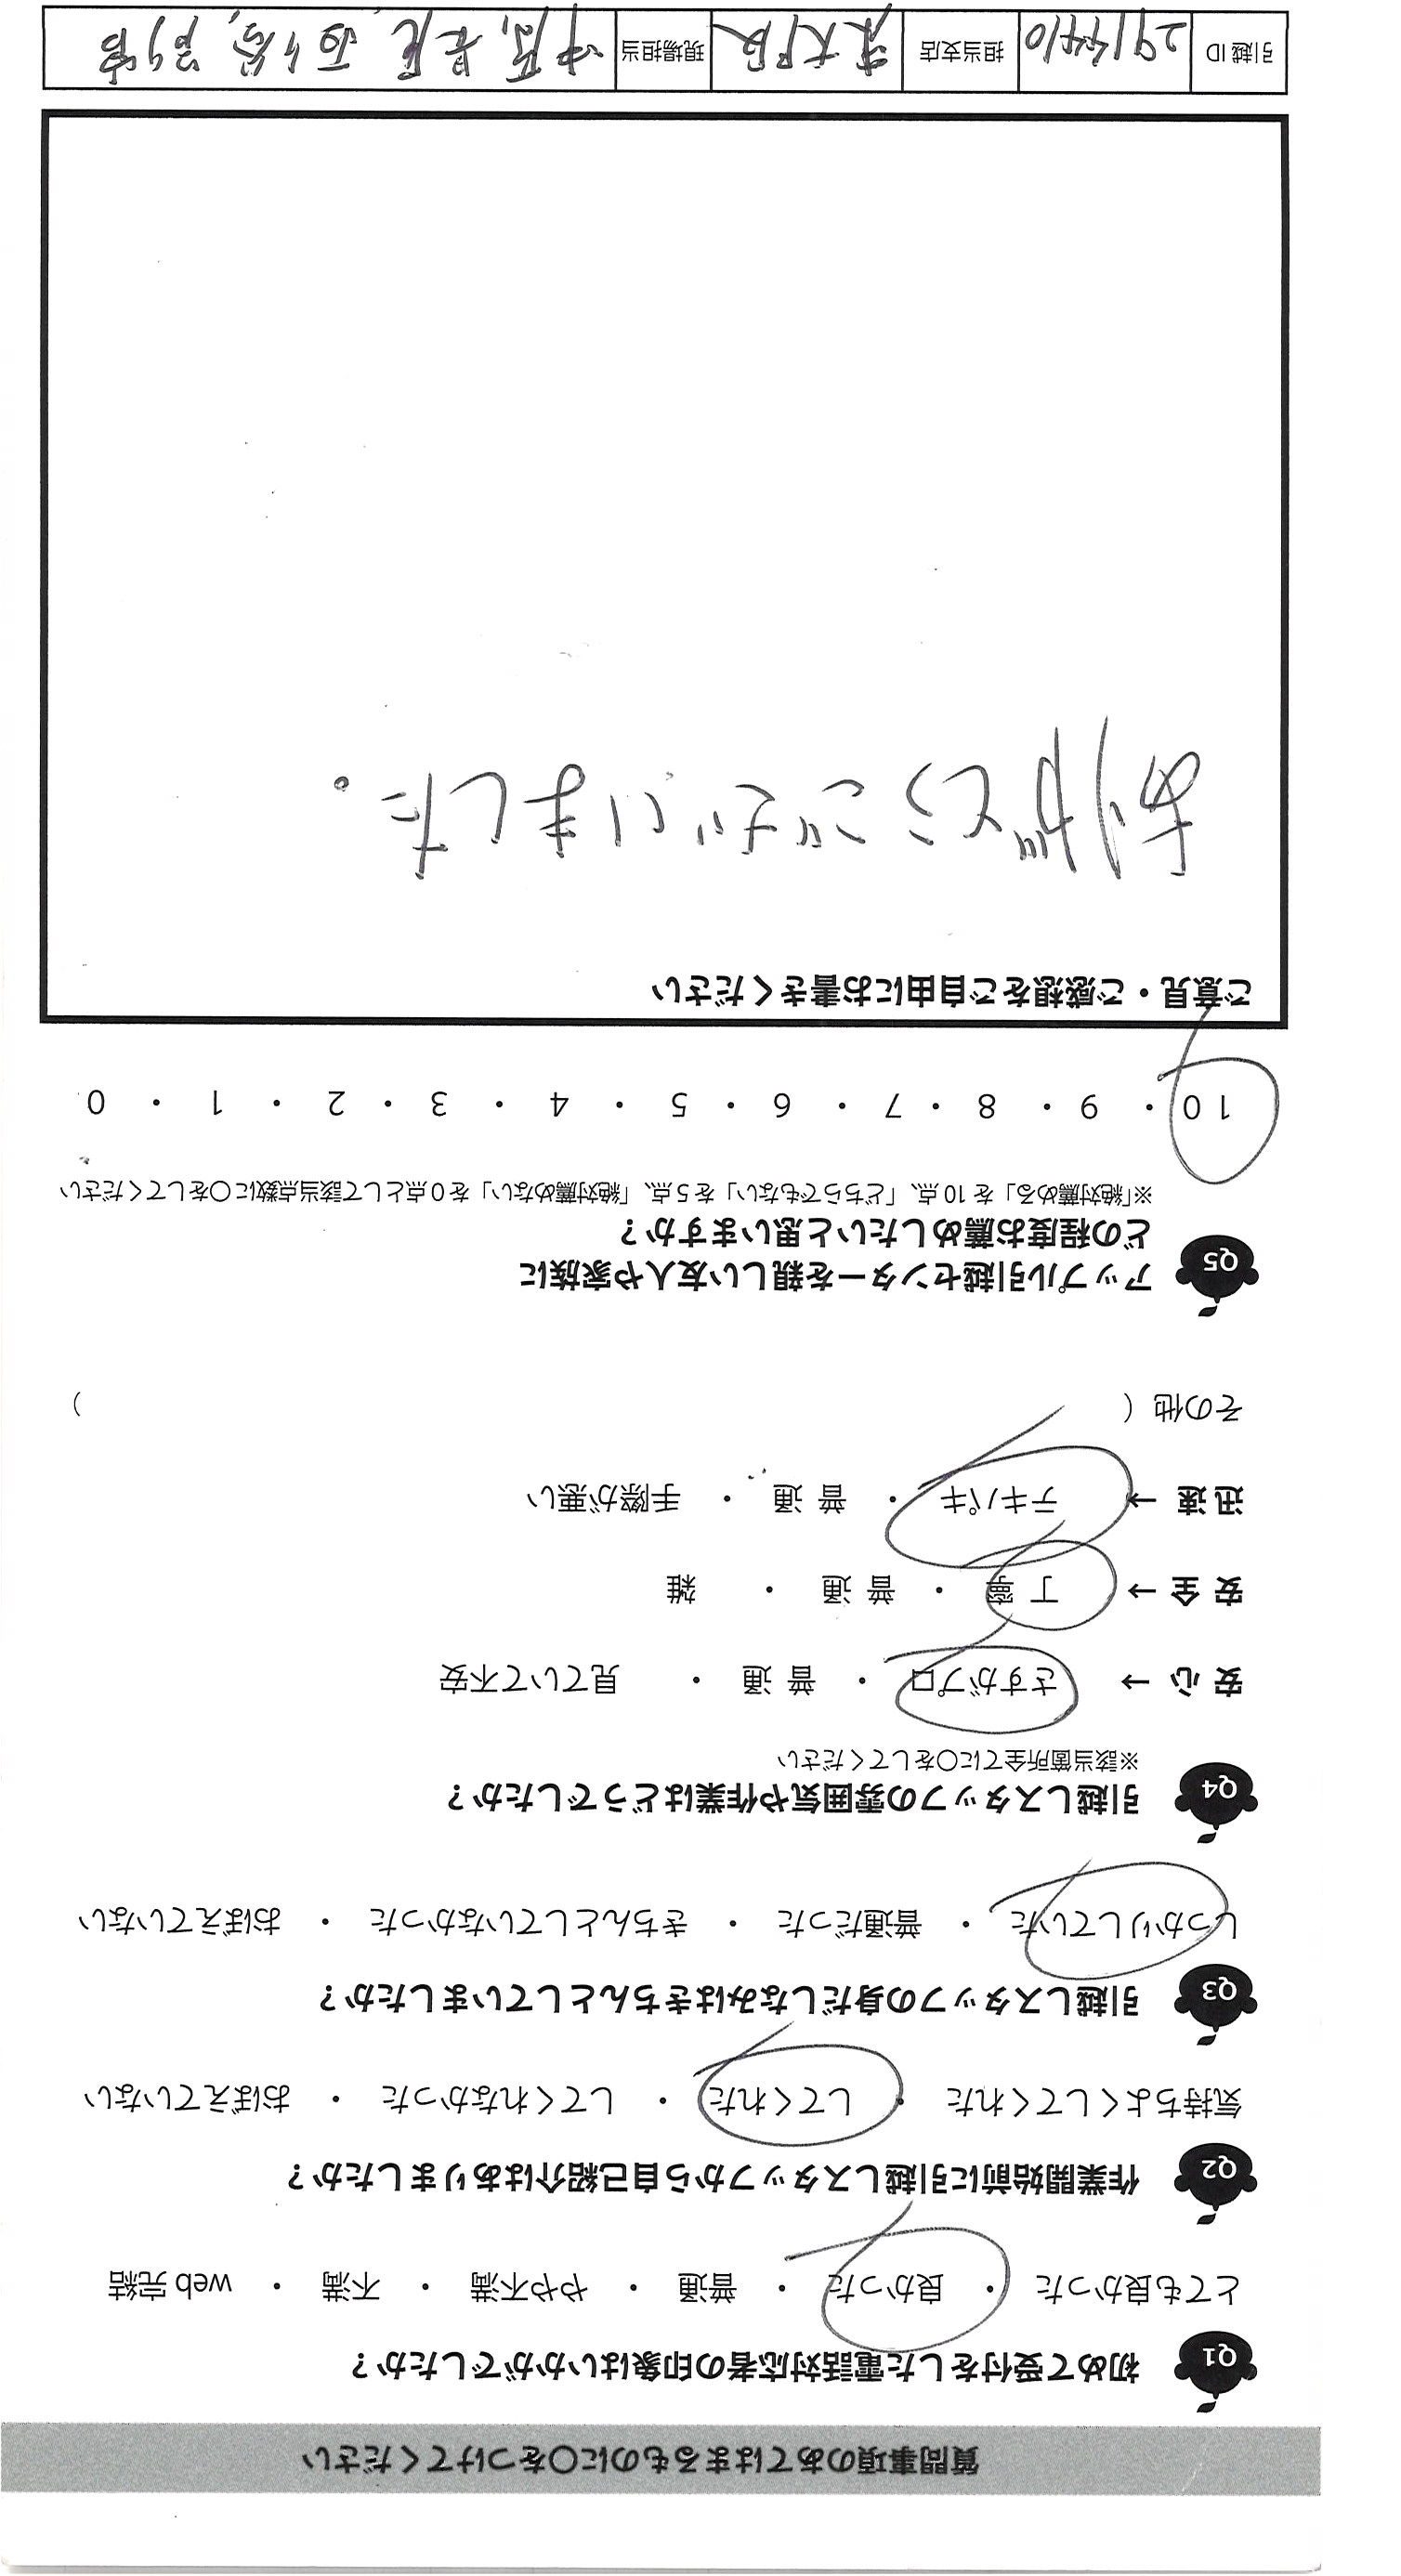 質問事項のあてはまるものに〇をつけてください
Q1 初めて受付をした電話対応者の印象はいかがでしたか？
とても良かった ・ 良かった ・ 普通 ・ やや不満 ・ 不満 ・ web 完結
Q2 作業開始前に引越しスタッフから自己紹介はありましたか？
気持ちよくしてくれた ・ してくれた ・ してくれなかった ・ おぼえていない
Q3 引越しスタッフの身だしなみはきちんとしていましたか？
しっかりしていた ・ 普通だった ・ きちんとしていなかった ・ おぼえていない
Q4 引越しスタッフの雰囲気や作業はどうでしたか？
※該当箇所全てに〇をしてください
安 心 → さすがプロ ・ 普 通 ・ 見ていて不安
安 全 → 丁 寧 ・ 普 通 ・ 雑
迅 速 → テキパキ ・ 普 通 ・ 手際が悪い
その他（ ）
Q5 アップル引越センターを親しい友人や家族に
どの程度お薦めしたいと思いますか？
※「絶対薦める」を 10 点、「どちらでもない」を 5 点、「絶対薦めない」を 0 点として該当点数に〇をしてください
10 ・ 9 ・ 8 ・ 7 ・ 6 ・ 5 ・ 4 ・ 3 ・ 2 ・ 1 ・ 0
ご意見・ご感想をご自由にお書きください
ありがとうございました。
引越 ID 担当支店 東大阪 現場担当 中原,